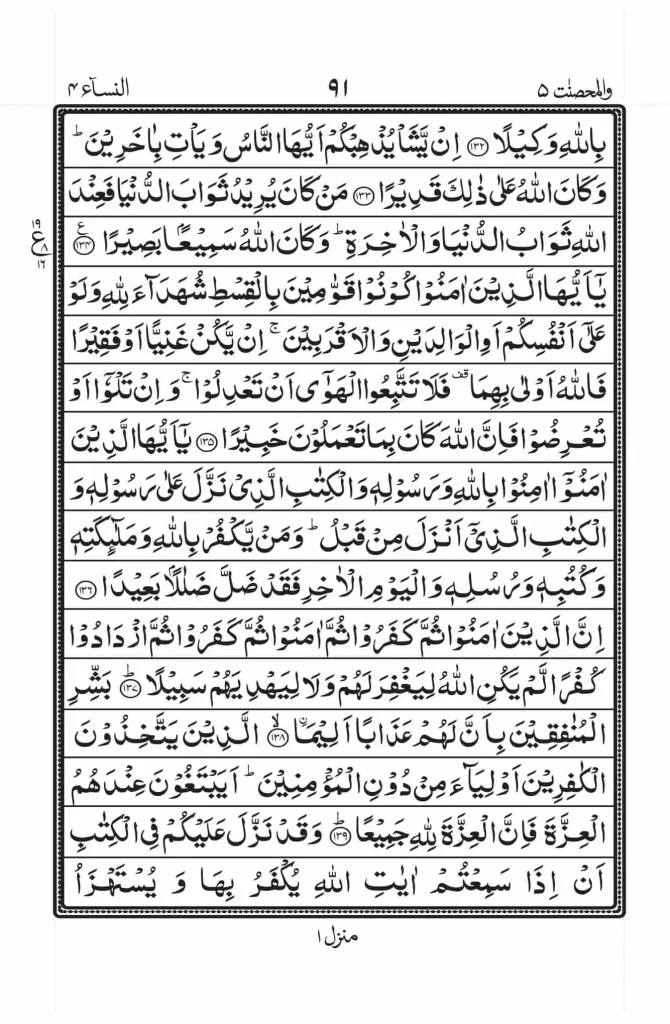 والمحصنٰت ۵
۹۱
النسآء ۴
بِاللّٰهِ وَكِيْلًا ﴿۱۳۲﴾ اِنْ يَّشَاْ يُذْهِبْكُمْ اَيُّهَا النَّاسُ وَيَاْتِ بِاٰخَرِيْنَ ؕ
وَكَانَ اللّٰهُ عَلٰى ذٰلِكَ قَدِيْرًا ﴿۱۳۳﴾ مَنْ كَانَ يُرِيْدُ ثَوَابَ الدُّنْيَا فَعِنْدَ
اللّٰهِ ثَوَابُ الدُّنْيَا وَالْاٰخِرَةِ ؕ وَكَانَ اللّٰهُ سَمِيْعًۢا بَصِيْرًا ﴿۱۳۴﴾ ع
۱۹
ع ۸
۱۶
يٰۤاَيُّهَا الَّذِيْنَ اٰمَنُوْا كُوْنُوْا قَوّٰمِيْنَ بِالْقِسْطِ شُهَدَآءَ لِلّٰهِ وَلَوْ
عَلٰۤى اَنْفُسِكُمْ اَوِ الْوَالِدَيْنِ وَالْاَقْرَبِيْنَ ۚ اِنْ يَّكُنْ غَنِيًّا اَوْ فَقِيْرًا
فَاللّٰهُ اَوْلٰى بِهِمَا قف فَلَا تَتَّبِعُوا الْهَوٰٓى اَنْ تَعْدِلُوْا ۚ وَاِنْ تَلْوٗۤا اَوْ
تُعْرِضُوْا فَاِنَّ اللّٰهَ كَانَ بِمَا تَعْمَلُوْنَ خَبِيْرًا ﴿۱۳۵﴾ يٰۤاَيُّهَا الَّذِيْنَ
اٰمَنُوْۤا اٰمِنُوْا بِاللّٰهِ وَرَسُوْلِهٖ وَالْكِتٰبِ الَّذِيْ نَزَّلَ عَلٰى رَسُوْلِهٖ وَ
الْكِتٰبِ الَّذِيْۤ اَنْزَلَ مِنْ قَبْلُ ؕ وَمَنْ يَّكْفُرْ بِاللّٰهِ وَمَلٰٓئِكَتِهٖ
وَكُتُبِهٖ وَرُسُلِهٖ وَالْيَوْمِ الْاٰخِرِ فَقَدْ ضَلَّ ضَلٰلًۢا بَعِيْدًا ﴿۱۳۶﴾
اِنَّ الَّذِيْنَ اٰمَنُوْا ثُمَّ كَفَرُوْا ثُمَّ اٰمَنُوْا ثُمَّ كَفَرُوْا ثُمَّ ازْدَادُوْا
كُفْرًا لَّمْ يَكُنِ اللّٰهُ لِيَغْفِرَ لَهُمْ وَلَا لِيَهْدِيَهُمْ سَبِيْلًا ﴿۱۳۷﴾ؕ بَشِّرِ
الْمُنٰفِقِيْنَ بِاَنَّ لَهُمْ عَذَابًا اَلِيْمَاۨ ﴿۱۳۸﴾ۙ الَّذِيْنَ يَتَّخِذُوْنَ
الْكٰفِرِيْنَ اَوْلِيَآءَ مِنْ دُوْنِ الْمُؤْمِنِيْنَ ؕ اَيَبْتَغُوْنَ عِنْدَهُمُ
الْعِزَّةَ فَاِنَّ الْعِزَّةَ لِلّٰهِ جَمِيْعًا ﴿۱۳۹﴾ؕ وَقَدْ نَزَّلَ عَلَيْكُمْ فِي الْكِتٰبِ
اَنْ اِذَا سَمِعْتُمْ اٰيٰتِ اللّٰهِ يُكْفَرُ بِهَا وَ يُسْتَهْزَاُ
منزل ۱